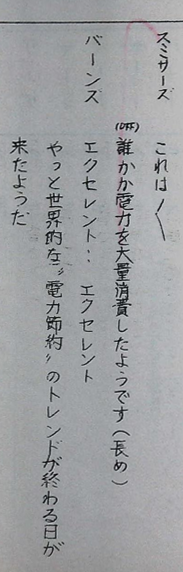 スミサーズ　これは〱
(OFF)誰かが電力を大量消費したようです(長め)
バーンズ　エクセレント‥　エクセレント
やっと世界的な〝電力節約〟のトレンドが終わる日が
来たようだ